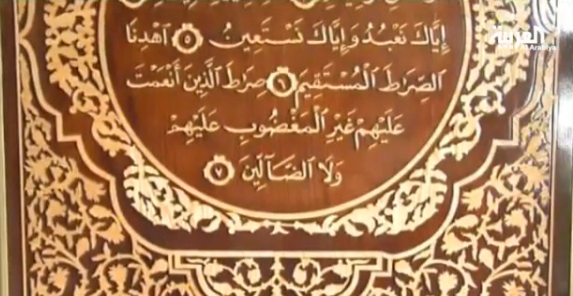 إِيَّاكَ نَعْبُدُ وَإِيَّاكَ نَسْتَعِينُ ٥ اَهْدِنَا
الصِّرَاطَ الْمُسْتَقِيمَ ٦ صِرَاطَ الَّذِينَ أَنْعَمْتَ
عَلَيْهِمْ غَيْرِ الْمَغْضُوبِ عَلَيْهِمْ
وَلَا الضَّآلِّينَ ٧
العربية
Al Arabiya